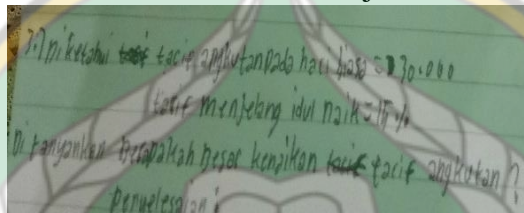 3.) Diketahui tarif angkutan pada hari biasa = 30.000
tarif menjelang idul naik = 15%
Ditanyankan Berapakah Besar kenaikan tarif angkutan?
Penyelesaian :